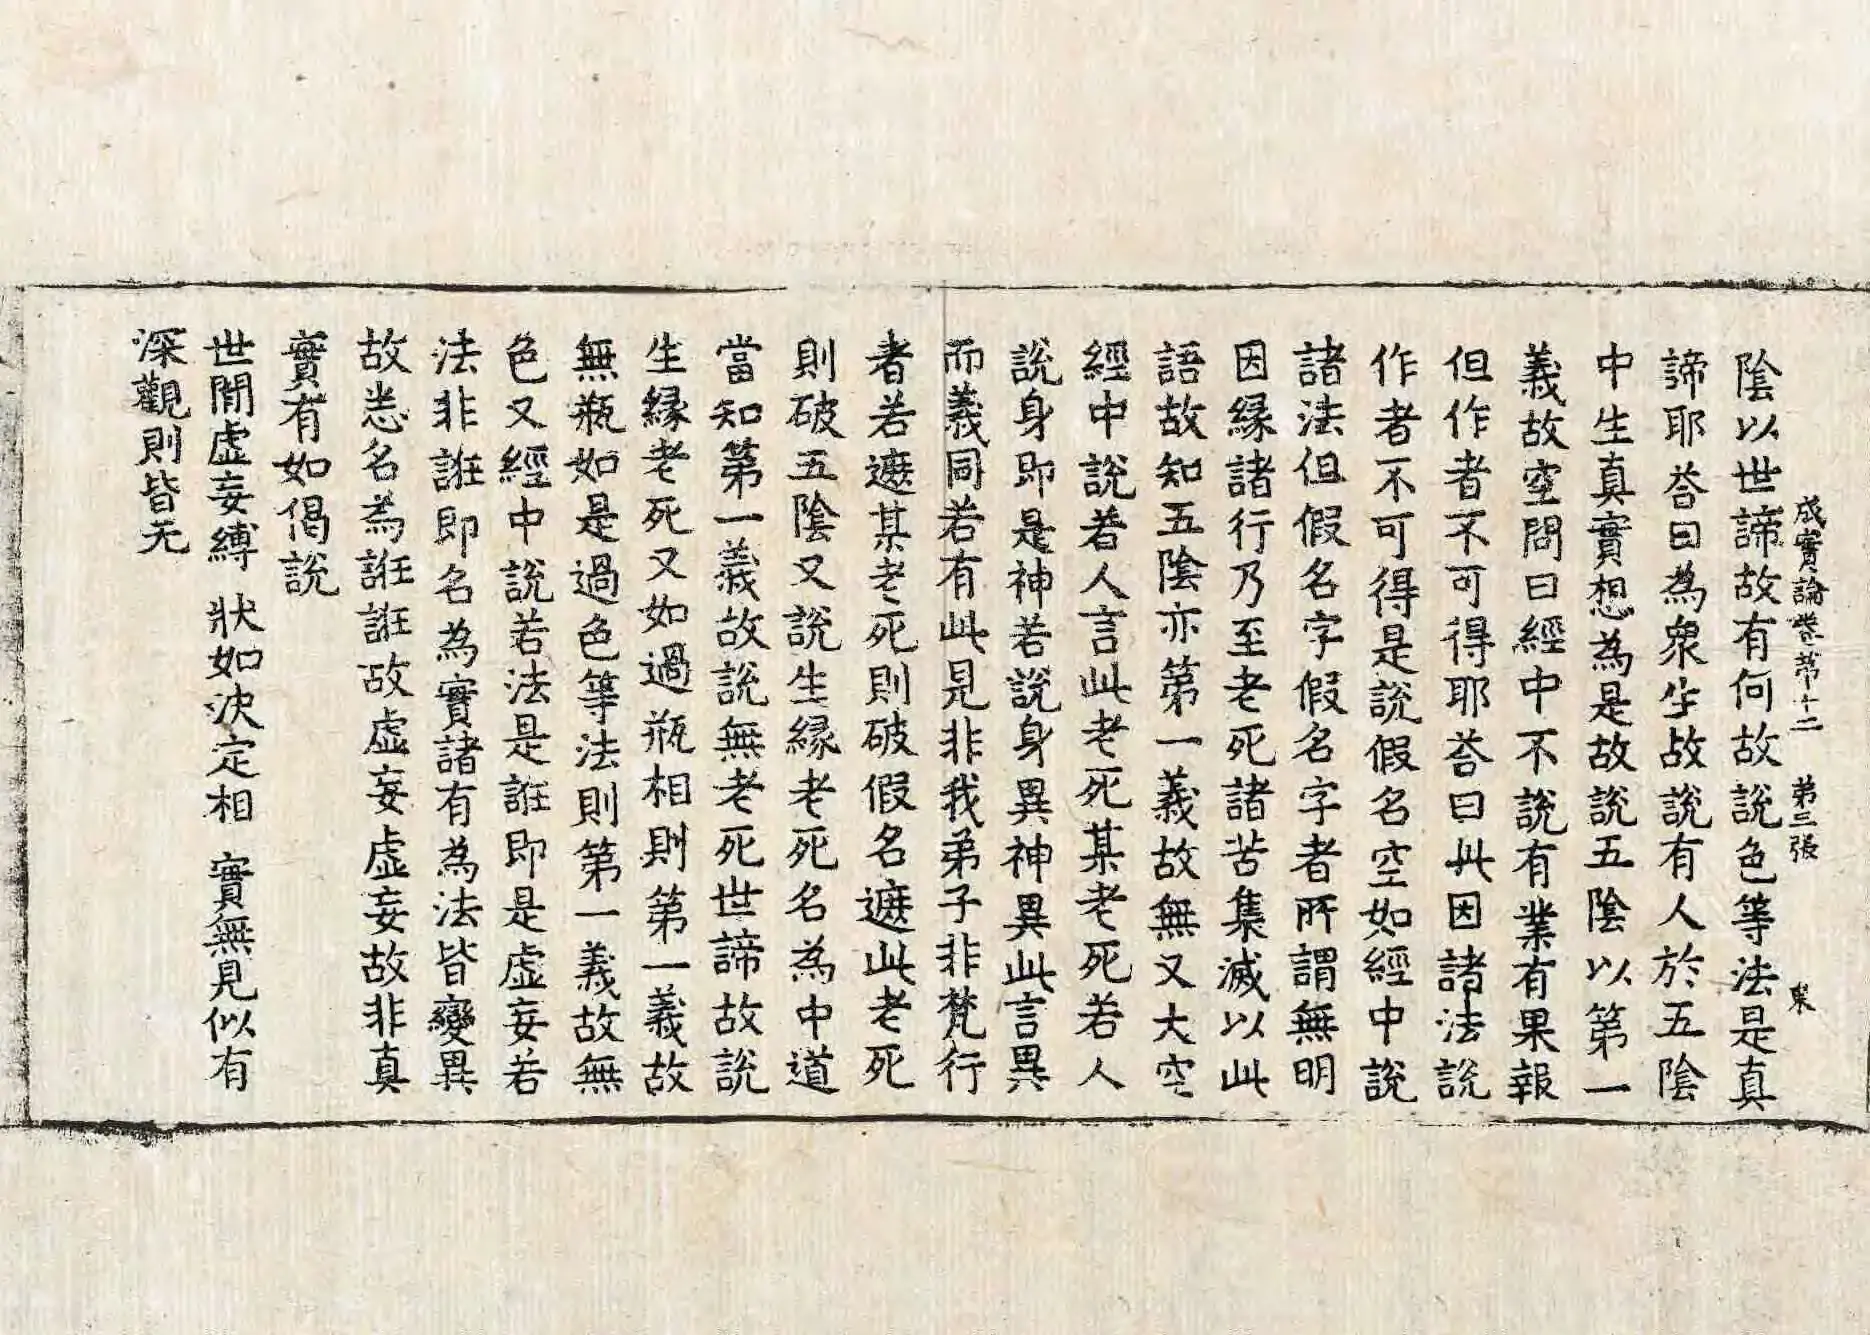 成實論卷第十二 第三張
陰以世諦故有何故說色等法是真
諦耶荅曰為衆生故說有人於五陰
中生真實想為是故說五陰以第一
義故空問曰經中不說有業有果報
但作者不可得耶荅曰此因諸法說
作者不可得是說假名空如經中說
諸法但假名字假名字者所謂無明
因縁諸行乃至老死諸苦集滅以此
語故知五陰亦第一義故無又大空
經中說若人言此老死某老死若人
說身即是神若說身異神異此言異
而義同若有此見非我弟子非梵行
者若遮某老死則破假名遮此老死
則破五陰又說生縁老死名為中道
當知第一義故說無老死世諦故說
生縁老死又如過瓶相則第一義故
無瓶如是過色等法則第一義故無
色又經中說若法是誑即是虛妄若
法非誑即名為實諸有為法皆變異
故悉名為誑誑故虛妄虛妄故非真
實有如偈說
世間虛妄縛 狀如決定相 實無見似有
深觀則皆无